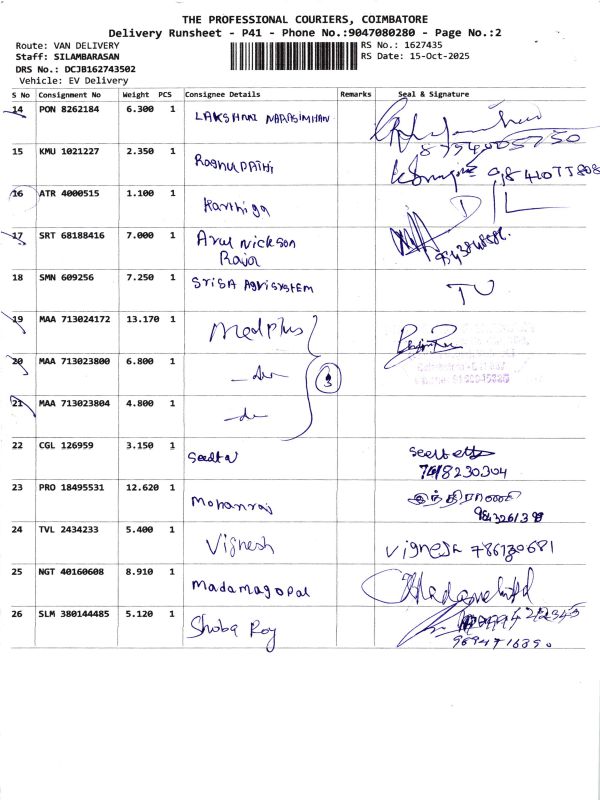 THE PROFESSIONAL COURIERS, COIMBATORE
Delivery Runsheet - P41 - Phone No.:9047080280 - Page No.:2
Route: VAN DELIVERY RS No.: 1627435
Staff: SILAMBARASAN RS Date: 15-Oct-2025
DRS No.: DCJB162743502
Vehicle: EV Delivery
S No Consignment No Weight PCS Consignee Details Remarks Seal & Signature
14 PON 8262184 6.300 1 LAKSHMI NARASIMHAN
15 KMU 1021227 2.350 1 Roghuppathi
16 ATR 4000515 1.100 1 Karthiga
17 SRT 68188416 7.000 1 Arul nickson
Raja
18 SMN 609256 7.250 1 SriSA AgriSystem
19 MAA 713024172 13.170 1 Medplus
20 MAA 713023800 6.800 1 3
21 MAA 713023804 4.800 1
22 CGL 126959 3.150 1
23 PRO 18495531 12.620 1 Mohanraj இந்திராணி
24 TVL 2434233 5.400 1 Vignesh Vignesh
25 NGT 40160608 8.910 1 Madamagopal
26 SLM 380144485 5.120 1 Shoba Roy